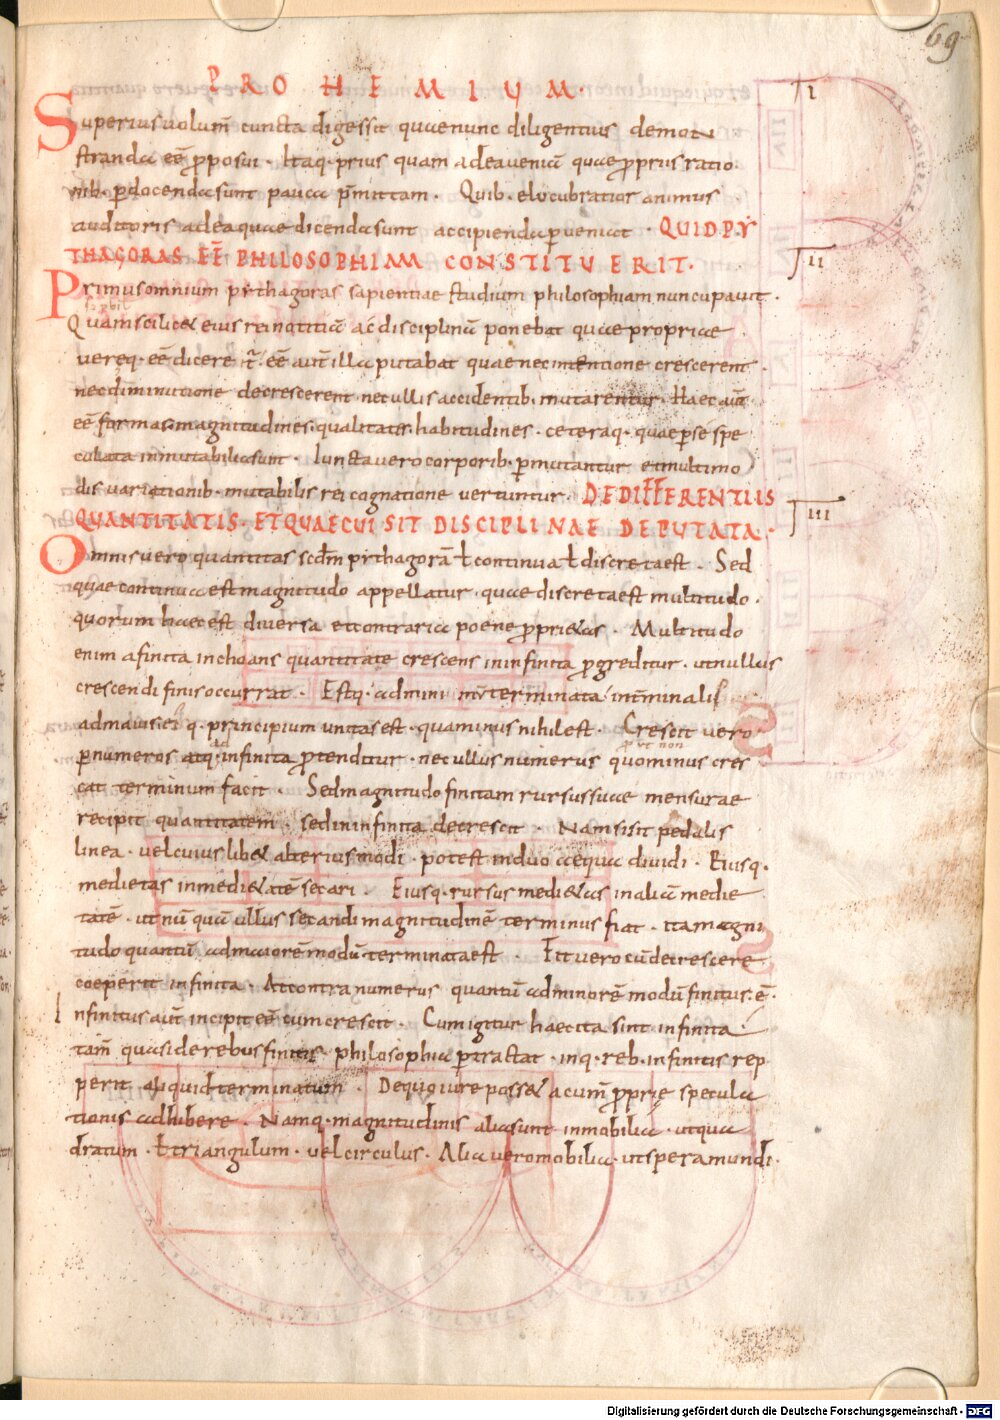 69
PROHEMIUM.
I
Superius uolum̄ cuncta digessit quae nunc diligentius demon
stranda eē p̄posui. Itaq. prius quam ad ea ueniā quae p̄prius ratio
nib. p̄docenda sunt pauca p̄mittam. Quib. elocubratior animus
auditoris ad ea quae dicenda sunt accipienda p̄ueniat. QUID PY
II
THAGORAS EĒ PHILOSOPHIAM CONSTITUERIT.
Primus omnium pythagoras sapientiae studium philosophiam nuncupauit.
Quam scilic& eius rei notitiā ac disciplinā ponebat quae proprie
uereq. eē dicer&ur. eē aut̄ illa putabat quae nec intentione crescerent.
nec diminutione decrescerent nec ullis accidentib. mutarentur. Haec aut̄
eē formas. magnitudines. qualitates. habitudines. ceteraq. quae p̄ se spe
culata inmutabilia sunt. Iuncta uero corporib. p̄mutantur et multimo
dis uariationib. mutabilis rei cognatione uertuntur. DE DIFFERENTIIS
III
QUANTITATIS. ET QUAE CUI SIT DISCIPLINAE DEPUTATA.
Omnis uero quantitas scd̄m pythagorā ł continua ł discreta est. Sed
quae continua est magnitudo appellatur. quae discreta est multitudo.
quorum haec est diuersa et contraria poene p̄pri&as. Multitudo
enim a finita inchoans quantitate crescens in infinita p̄greditur. ut nullus
crescendi finis occurrat. Estq. ad mini terminata interminalis
ad maius. ei q. principium unitas est. qua minus nihil est. Crescit uero
p̄ numeros atq. ad infinita p̄tenditur. nec ullus numerus quominus cres
cat terminum facit. Sed magnitudo finitam rursus suae mensurae
recipit quantitatem. sed in infinita decrescit. Nam si sit pedalis
linea. uel cuiuslib& alterius modi. potest in duo aequa diuidi. Eiusq.
medietas in medi&atē secari. Eiusq. rursus medi&as in aliā medie
tatē. ut nū quā ullus secandi magnitudinē terminus fiat. ita magni
tudo quantū ad maiorē modū terminata est. Fit uero cū decrescere
coeperit infinita. At contra numerus quantū ad minorē modū finitus. ē.
Infinitus aut̄ incipit eē cum crescit. Cum igitur haec ita sint infinita.
tam̄ quasi de rebus finitis philosophia p̄tractat. inq. reb. infinitis rep
perit aliquid terminatum. De quo iure poss& acum̄ p̄prię specula
tionis adhibere. Namq. magnitudinis alia sunt inmobilia. ut qua
dratum. ł triangulum. uel circulus. Alia uero mobilia. ut spera mundi.
Digitalisierung gefördert durch die Deutsche Forschungsgemeinschaft - DFG